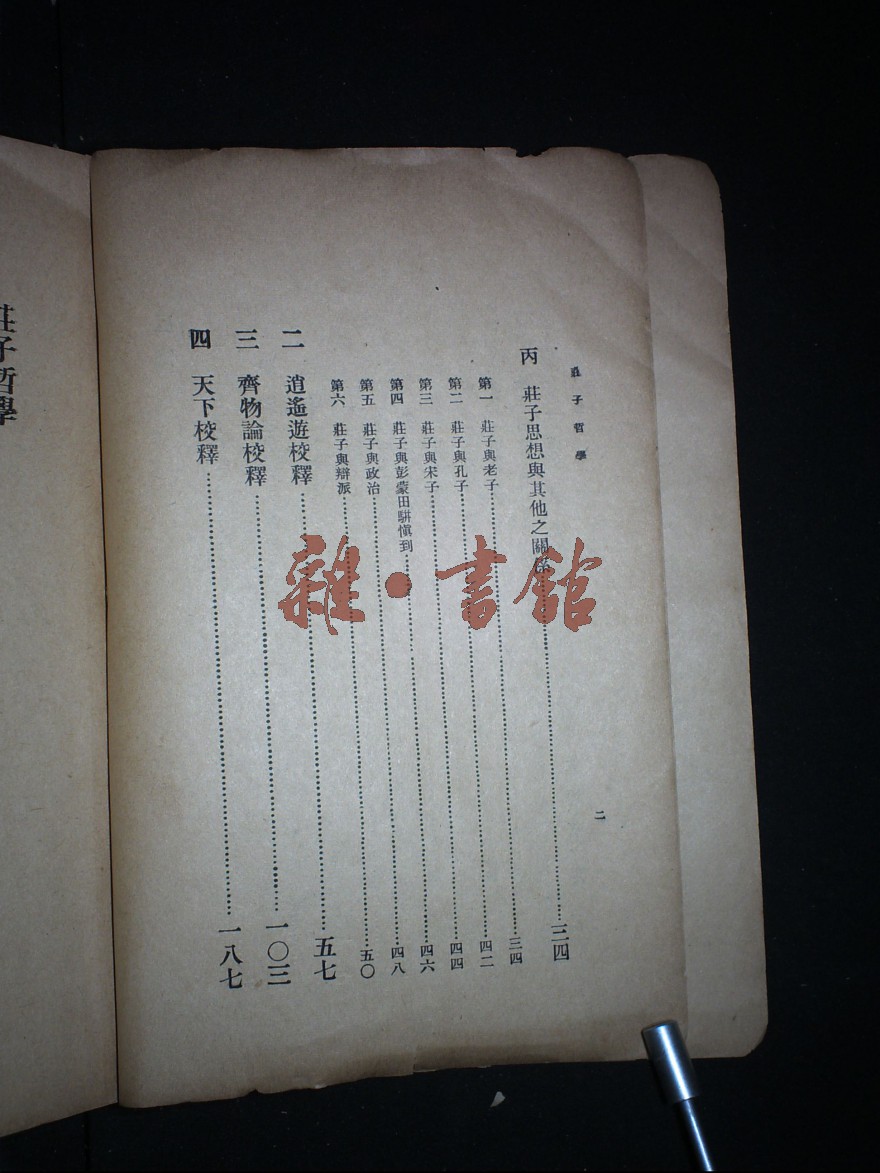 莊子哲學
二
丙　莊子思想與其他之關係……三四
第一　莊子與老子……三四
第二　莊子與孔子……四二
第三　莊子與宋子……四四
第四　莊子與彭蒙田駢愼到……四六
第五　莊子與政治……四八
第六　莊子與辯派……五〇
二　逍遙遊校釋……五七
三　齊物論校釋……一〇三
四　天下校釋……一八七
莊子哲學
雜·書館